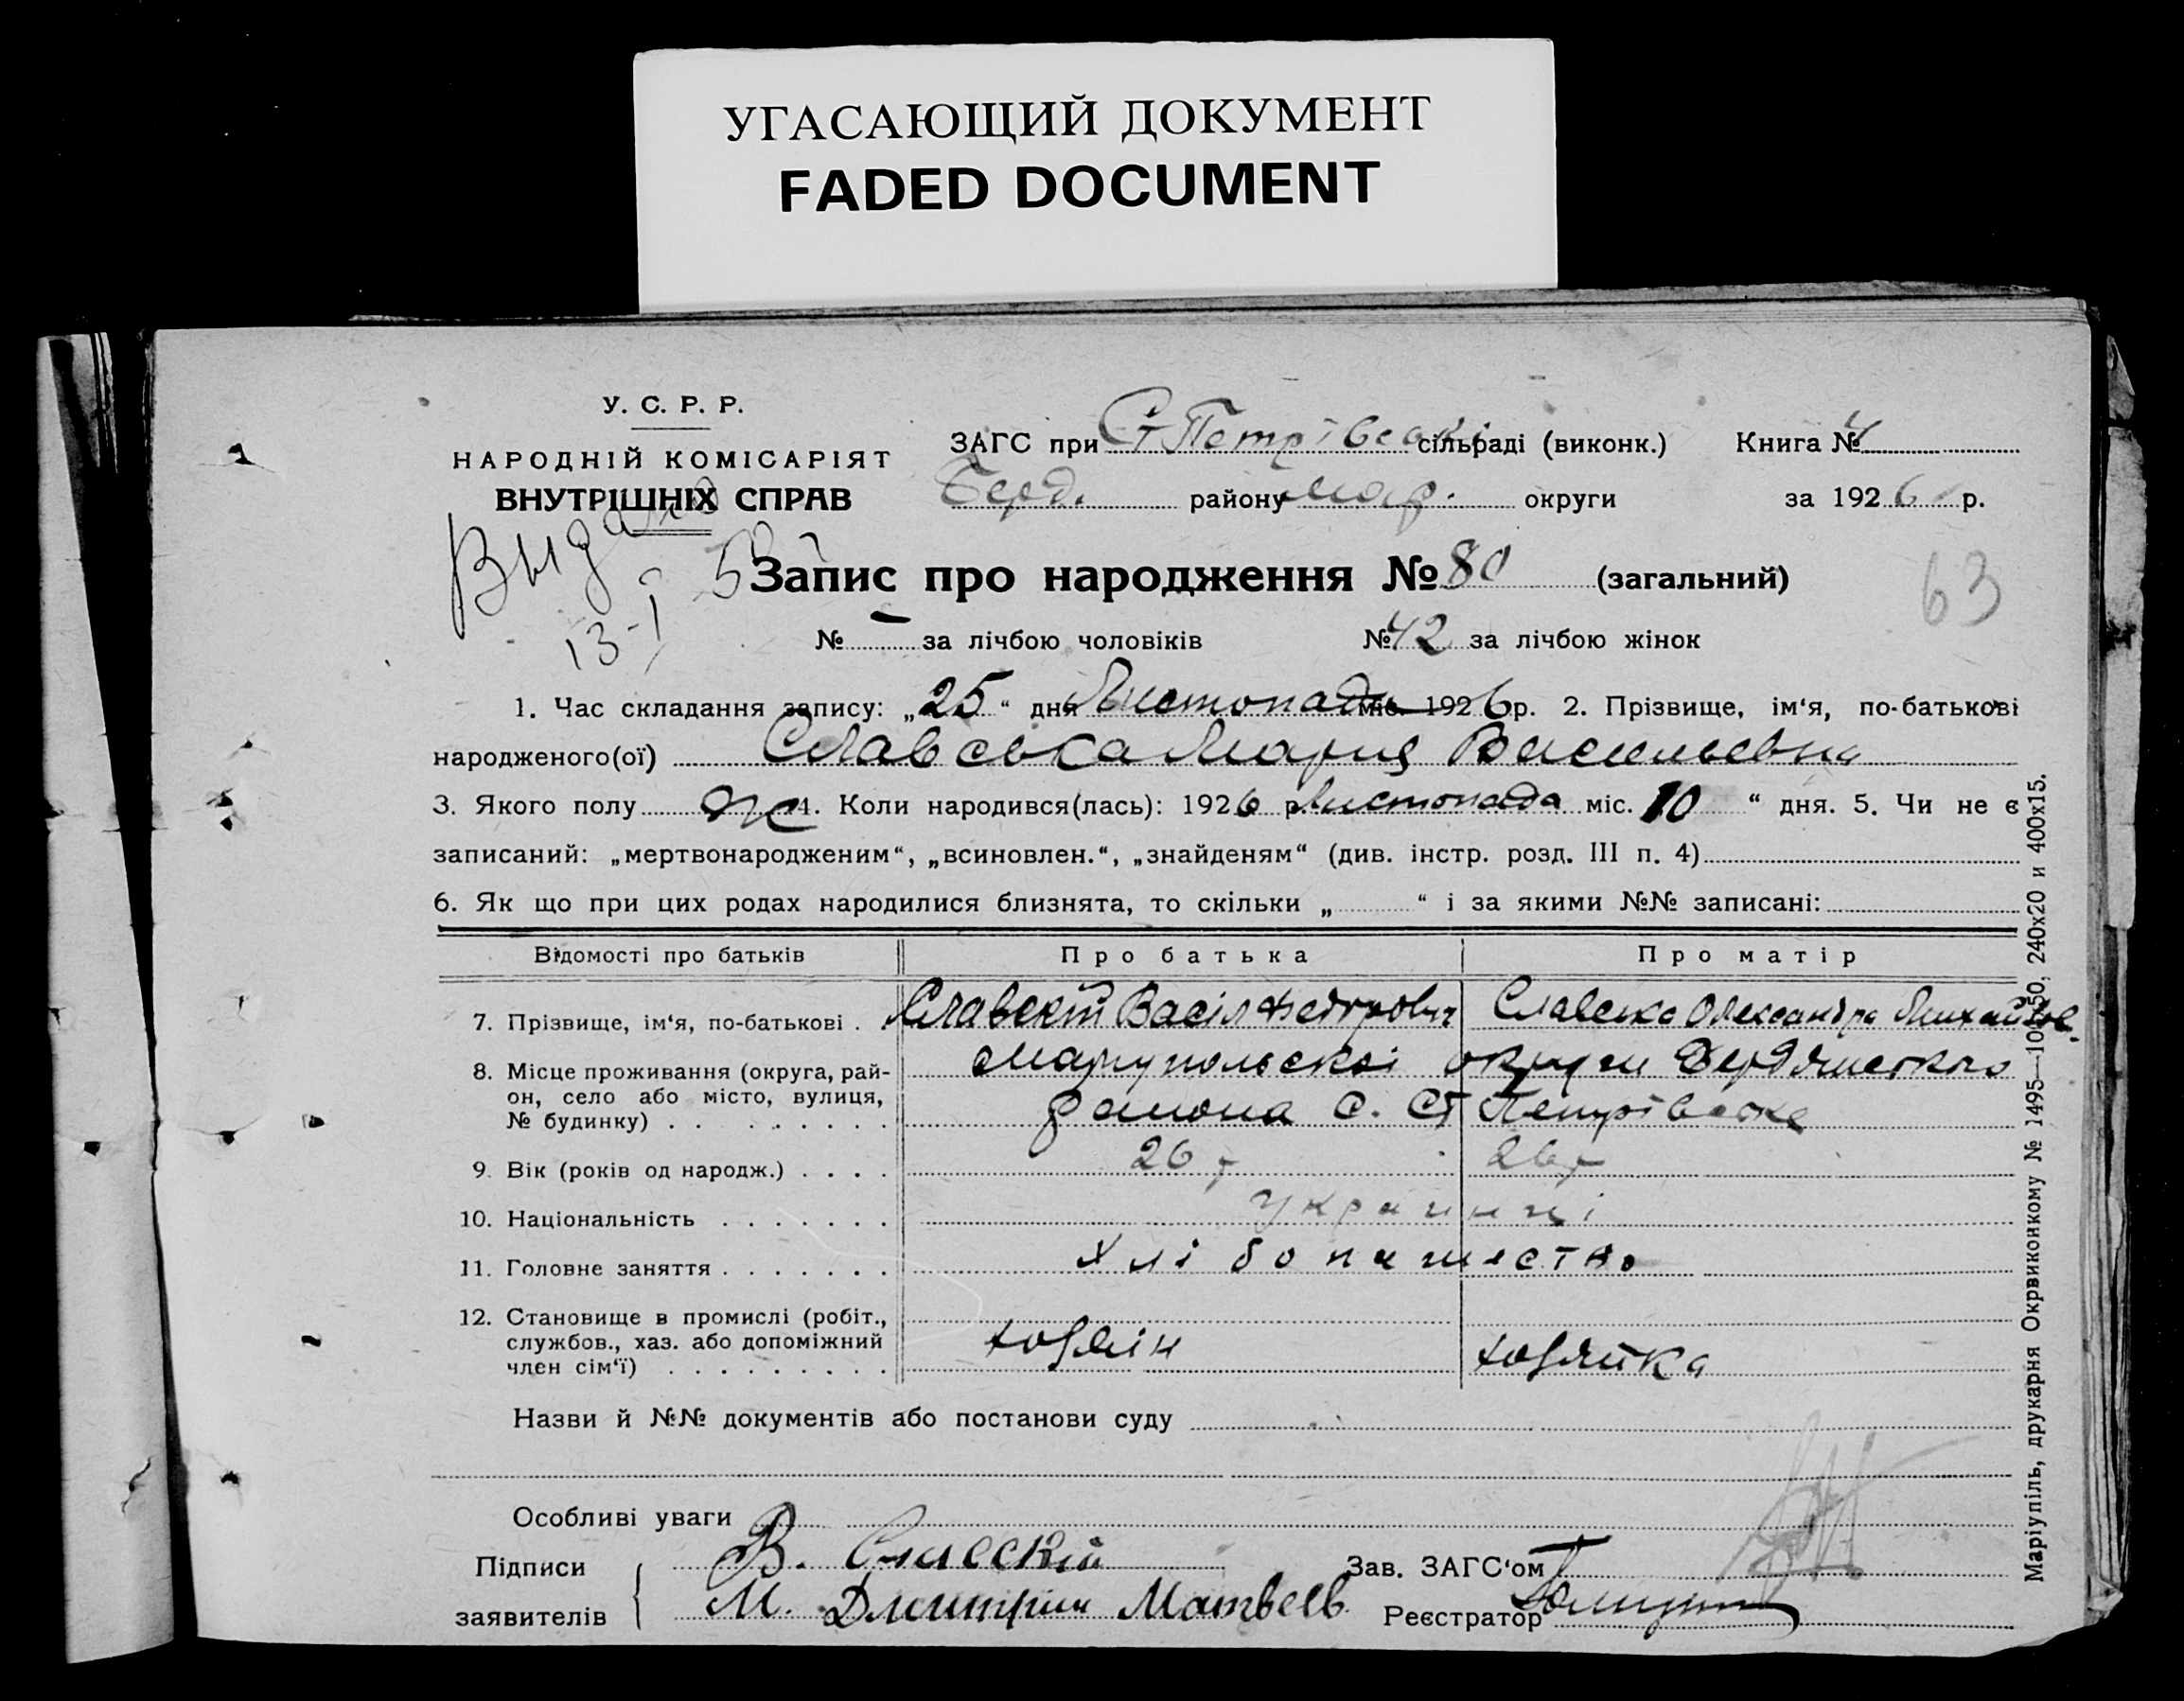 УГАСАЮЩИЙ ДОКУМЕНТ
FADED DOCUMENT
У. С. Р. Р.
НАРОДНІЙ КОМІСАРІЯТ
ВНУТРІШНІХ СПРАВ
ЗАГС при Ст Петрівські сільраді (виконк.) Книга № 4
Берд. району Мар. округи за 1926 р.
Выдано
13-I 5
Запис про народження № 80 (загальний)
63
№ – за лічбою чоловіків № 42 за лічбою жінок
1. Час складання запису: „25“ дня Листопада міс. 1926 р. 2. Прізвище, ім‘я, по-батькові
народженого(ої) Славська Мария Васильевна
3. Якого полу ж 4. Коли народився(лась): 1926 р. Листопада міс. 10 “ дня. 5. Чи не є
записаний: „мертвонародженим“, „всиновлен.“, „знайденям“ (див. інстр. розд. III п. 4)
6. Як що при цих родах народилися близнята, то скільки „ “ і за якими №№ записані:
Відомості про батьків Про батька Про матір
7. Прізвище, ім‘я, по-батькові . Славскій Васіл Федорович Славська Олександра Михайлов.
8. Місце проживання (округа, рай-
он, село або місто, вулиця,
№ будинку) . . . . . . . . .
Маріупольскоі округи Бердянського
району с. Ст Петрівске
9. Вік (років од народж.) . . . . 26 р 26 р
10. Національність . . . . . . . Украинці
11. Головне заняття . . . . . . . Хлібопашество
12. Становище в промислі (робіт.,
службов., хаз. або допоміжний
член сім‘ї) . . . . . . . . .
хозяін хозяйка
Назви й №№ документів або постанови суду
Особливі уваги
Підписи
заявителів
В. Славскій
М. Дмитрий Матвеев
Зав. ЗАГС‘ом
Реєстратор
Маріупіль, друкарня Окрвиконкому № 1495—10050, 240x20 и 400x15.